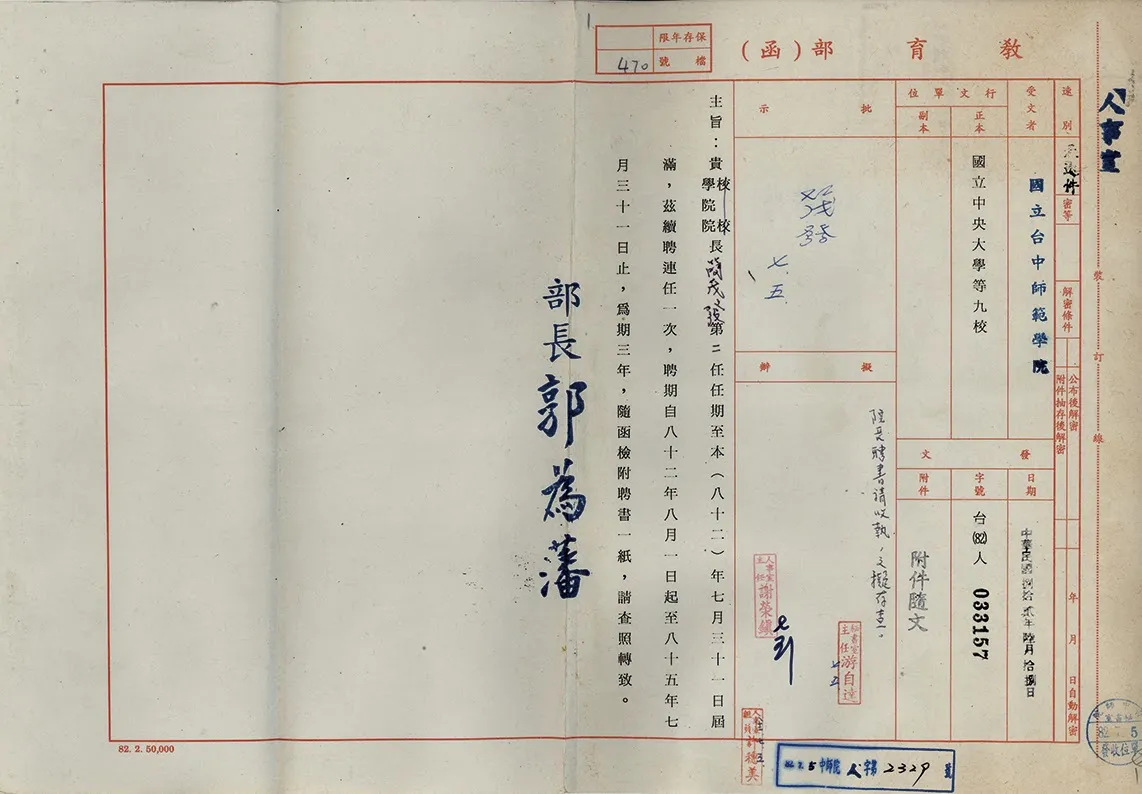 教育部（函）
保存年限
檔號
470
人事室
裝
訂
線
速別
密等
解密條件
公布後解密
附件抽存後解密
年 月 日自動解密
受文者
國立台中師範學院
行文單位
正本
國立中央大學等九校
副本
發文
日期
中華民國捌拾貳年陸月拾捌日
字號
台(82)人 033157
附件
附件隨文
批示
茂發
七.五
擬辦
院長聘書請收執，文擬存查。
秘書室主任游自達
七五
人事室主任謝榮鎮
主旨：貴校學院校院長簡茂發第二任任期至本（八十二）年七月三十一日屆
滿，茲續聘連任一次，聘期自八十二年八月一日起至八十五年七
月三十一日止，為期三年，隨函檢附聘書一紙，請查照轉致。
部長郭為藩
82. 2. 50,000
82.7.5中師院人字第2329號